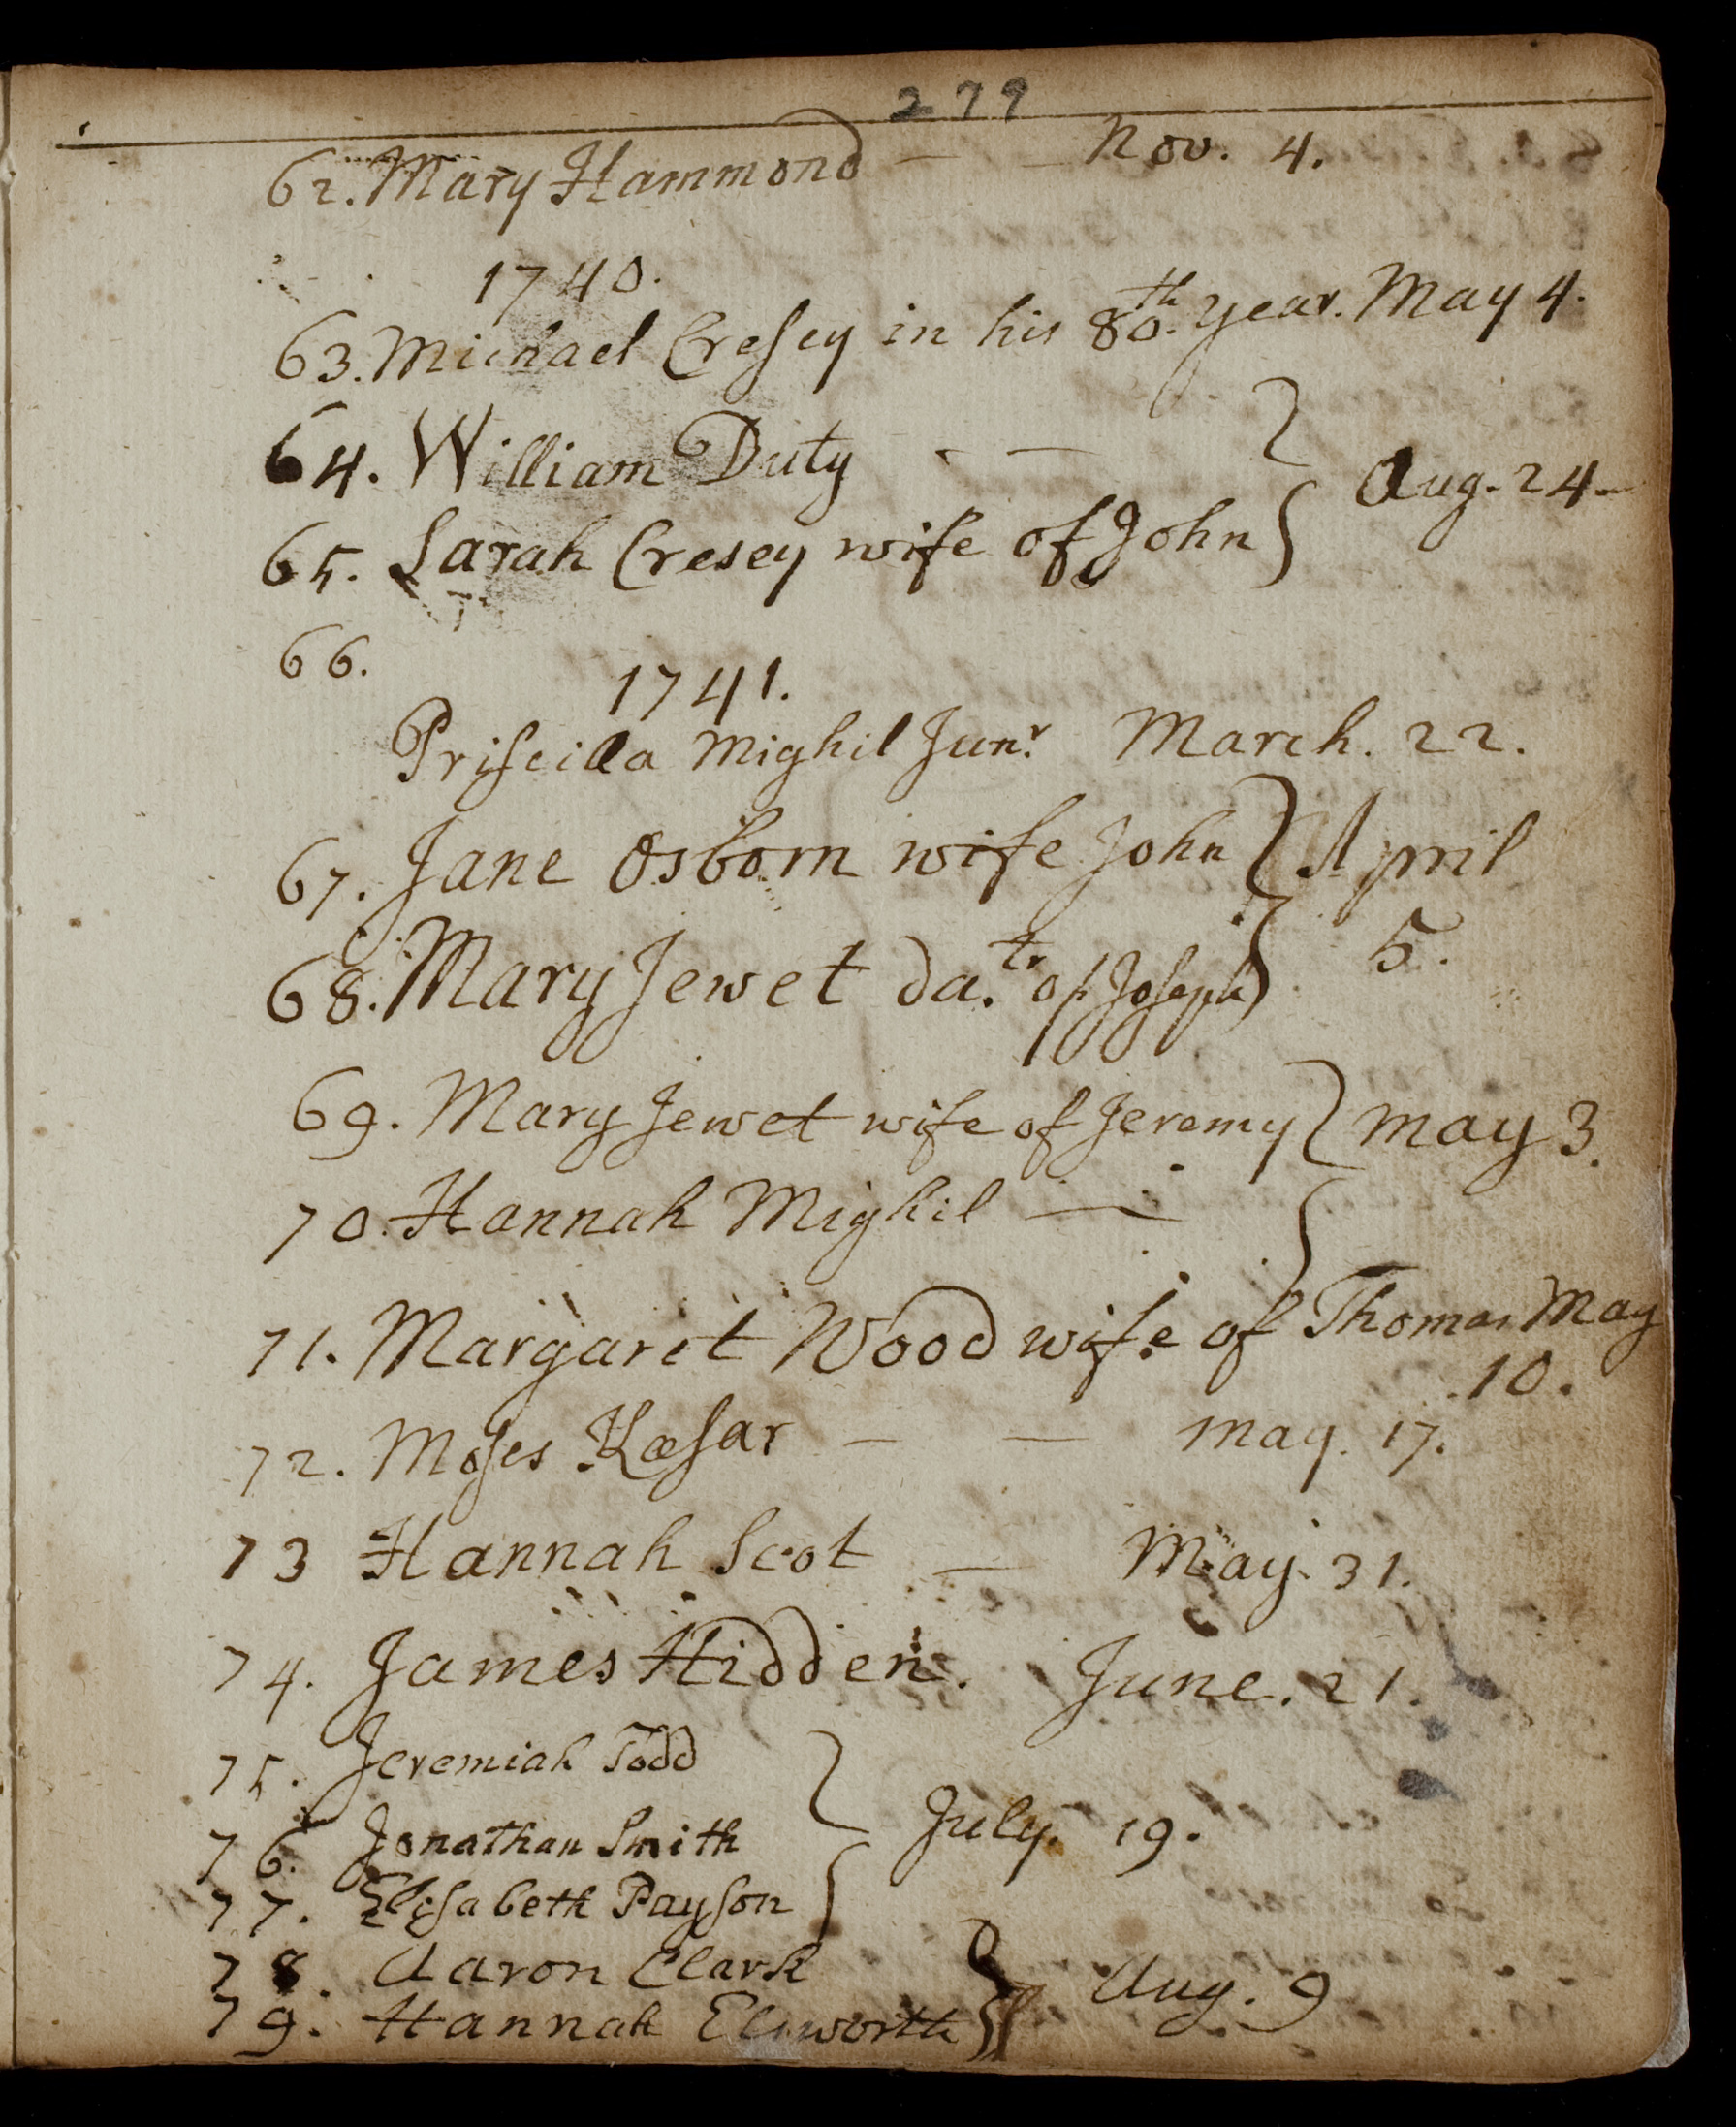 279
62. Mary Hammond — — Nov. 4.
1740.
63. Michael Cresey in his 80th. year. May 4.
64. William Duty - —
Aug. 24 -
65. Sarah Cresey wife of John
66.
1741.
Priscilla Mighil Junr. March. 22.
67. Jane Osborn wife John } April
68. Mary Jewet da.tr of Joseph } 5.
69. Mary Jewet wife of Jeremy } May 3.
70. Hannah Mighil —
71. Margaret Wood wife of Thomas May
10.
72. Moses Kæsar — — May. 17.
73 Hannah Scot — May. 31.
74. James Hidden. June. 21.
75. Jeremiah Todd
76. Jonathan Smith } July. 19.
77. Elisabeth Payson
78. Aaron Clark
79. Hannah Elsworth } Aug. 9